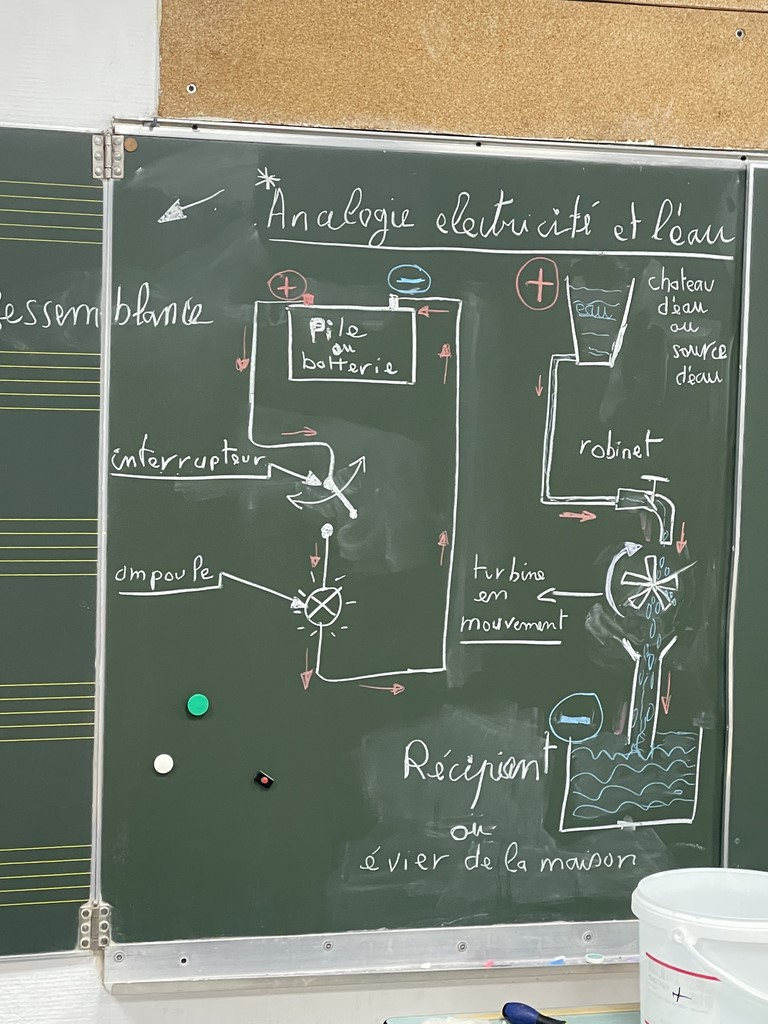 * Analogie electricité et l'éau
essemblance
+
−
Pile
ou
batterie
interrupteur
ampoule
+
eau
chateau
d'éau
ou
source
d'éau
robinet
turbine
en
mouvement
−
Récipiant
ou
évier de la maison
+